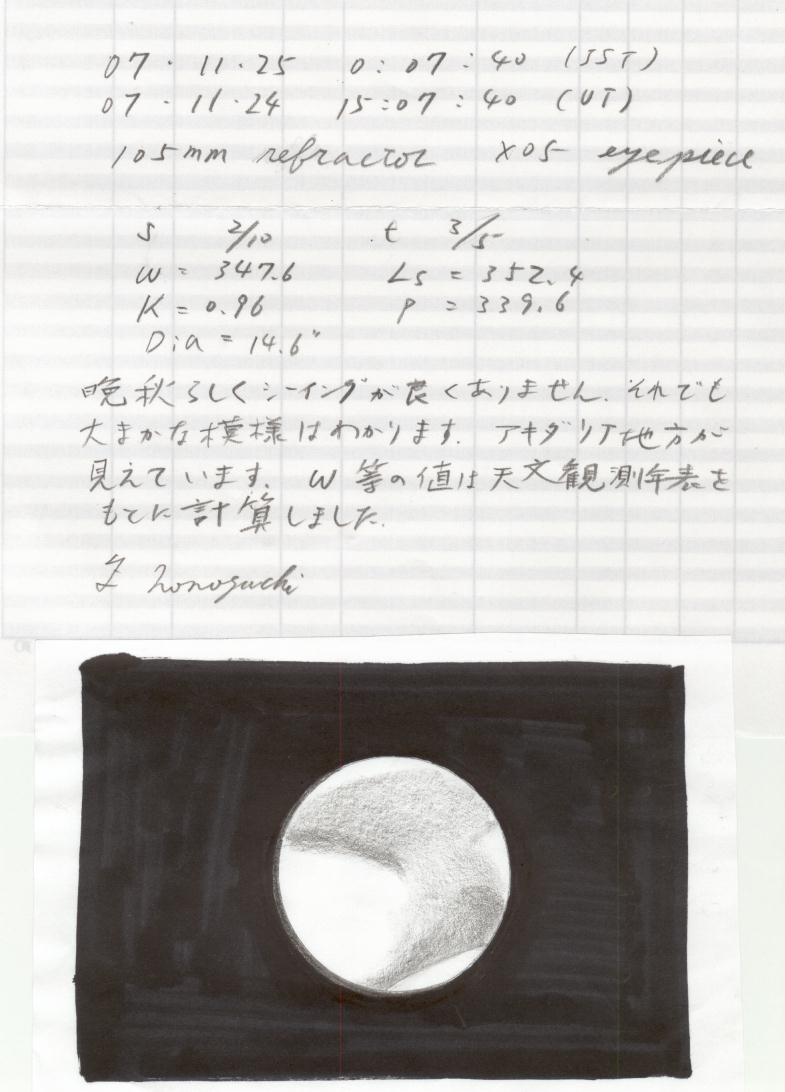 07・11・25 0:07:40 (JST)
07・11・24 15:07:40 (UT)
105mm refractor XO5 eyepiece
S 2/10 t 3/5
W = 347.6 Ls = 352.4
K = 0.96 P = 339.6
Dia = 14.6"
晩秋らしくシーイングが良くありません。それでも
大まかな模様はわかります。アキダリア地方が
見えています。W等の値は天文観測年表を
もとに計算しました。